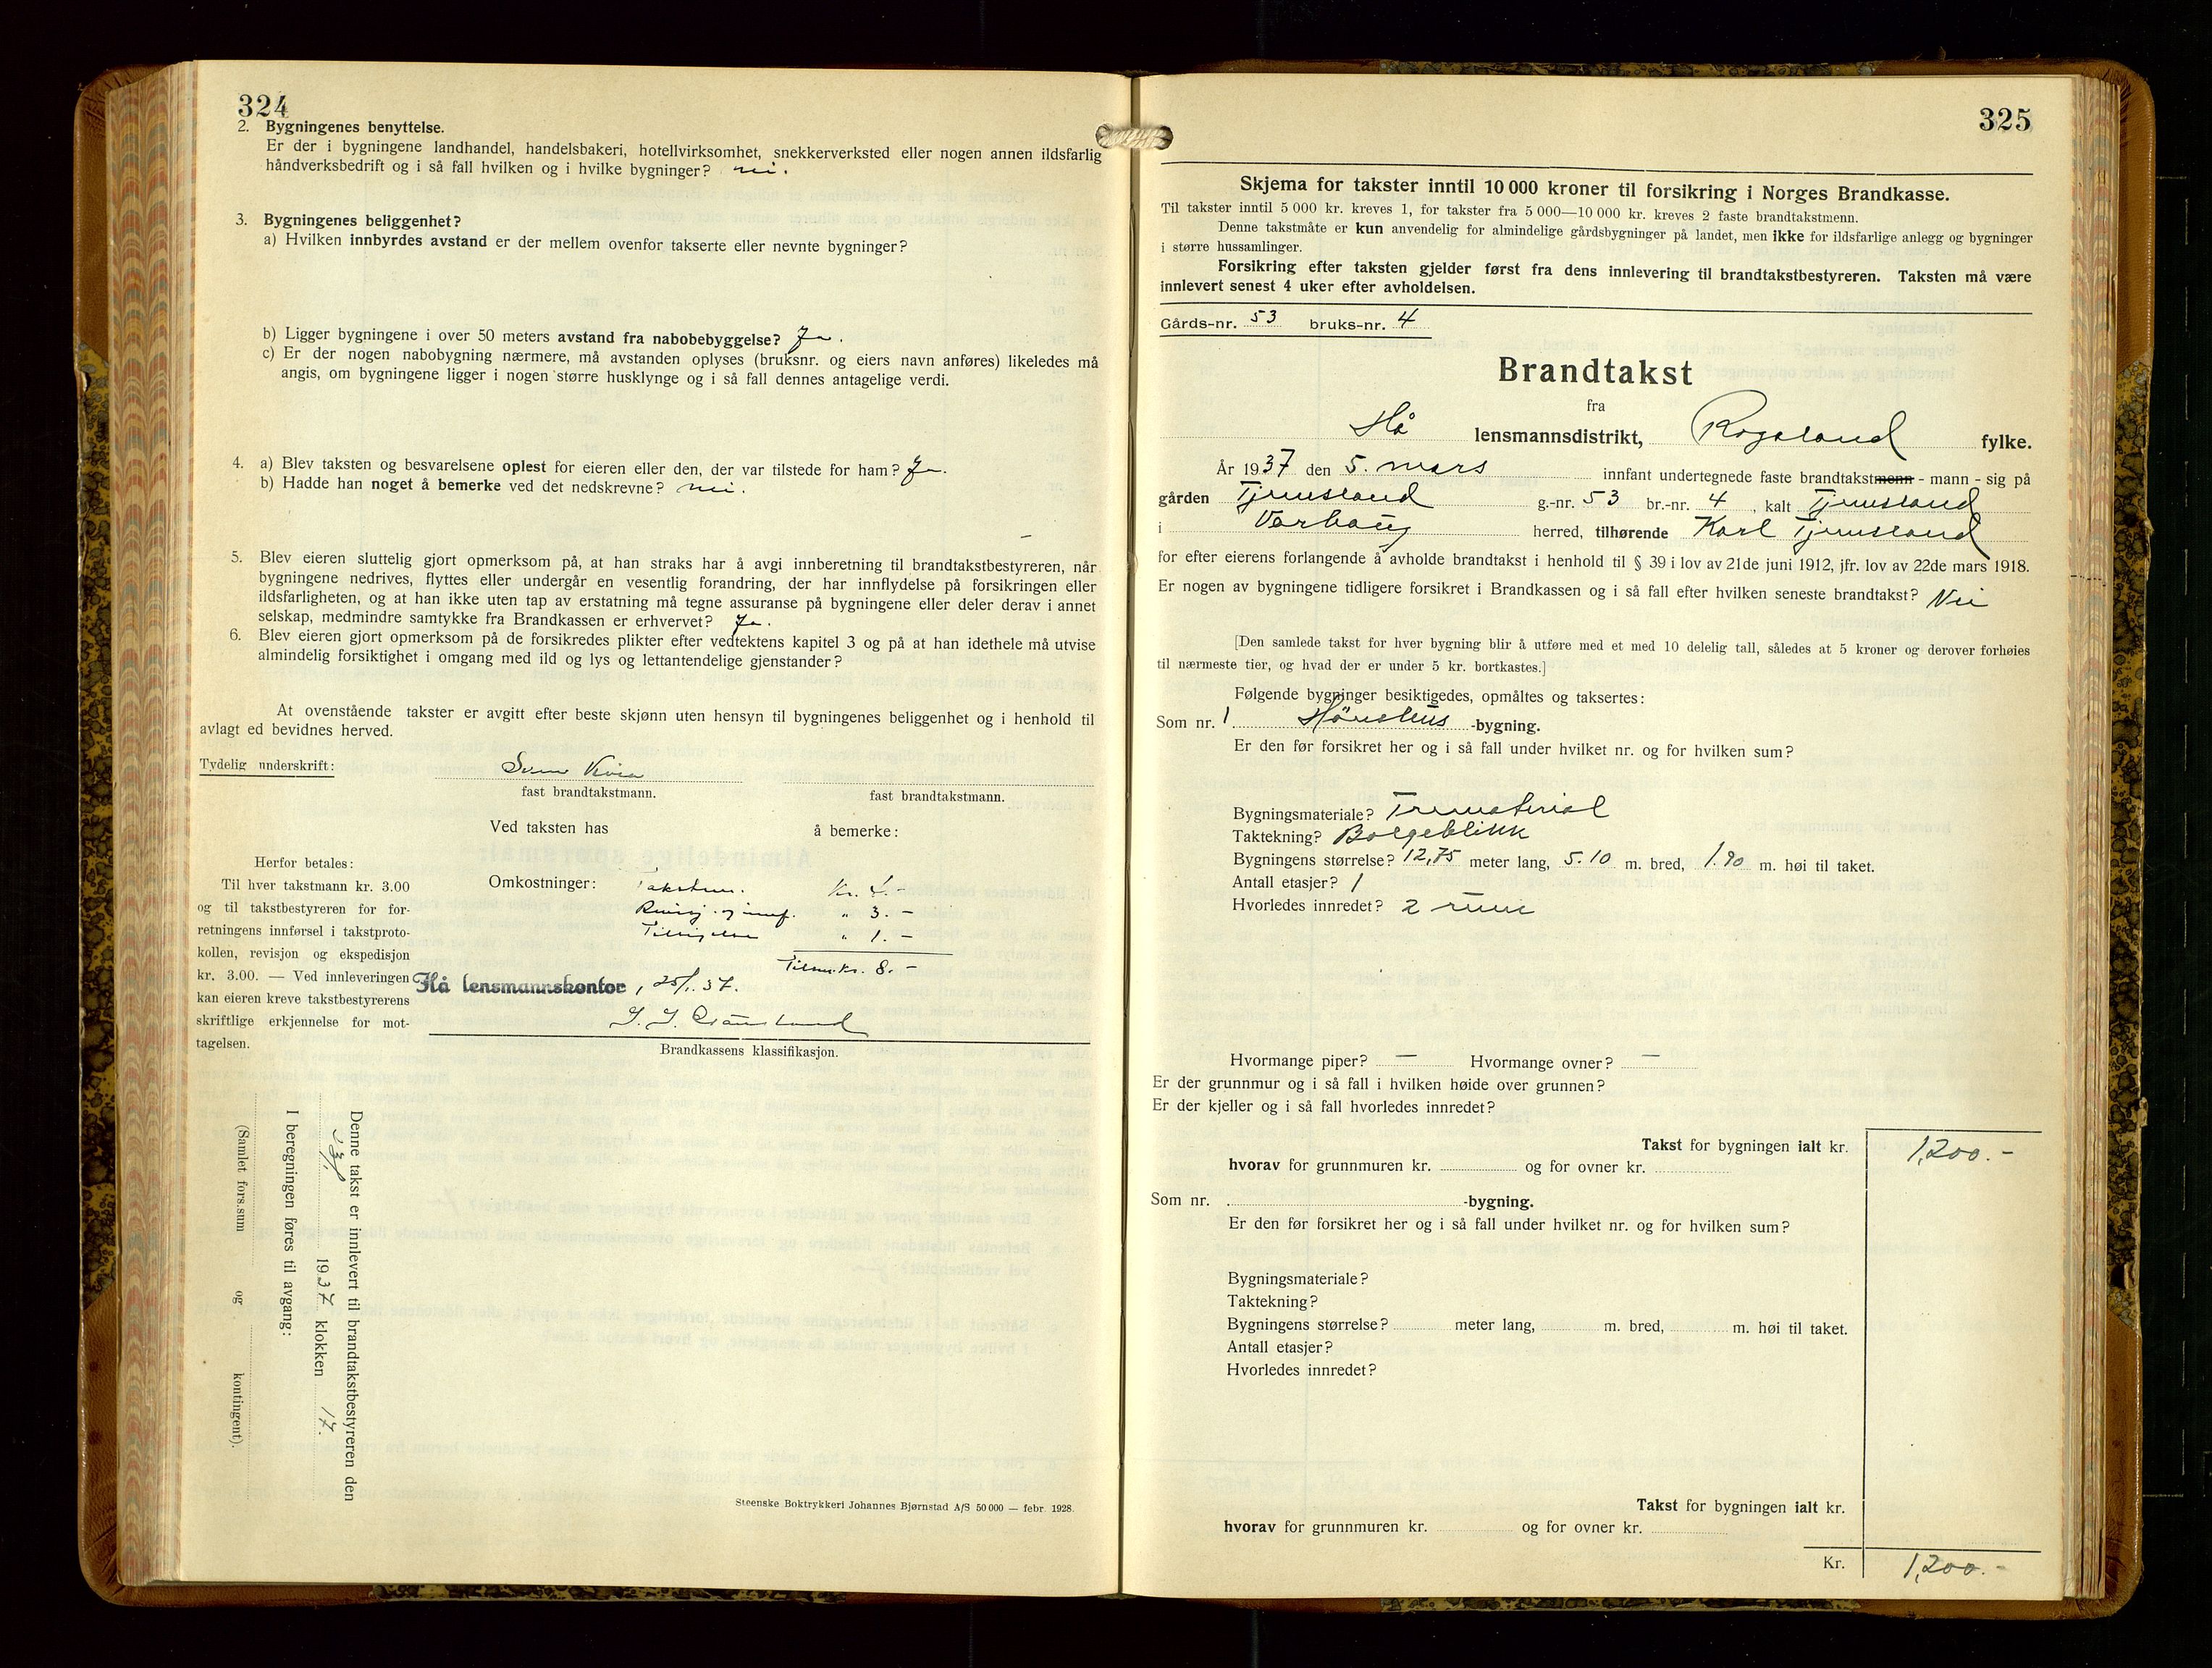 324
2. Bygningenes benyttelse.
Er der i bygningene landhandel, handelsbakeri, hotellvirksomhet, snekkerverksted eller nogen annen ildsfarlig
håndverksbedrift og i så fall hvilken og i hvilke bygninger? nei.
3. Bygningenes beliggenhet?
a) Hvilken innbyrdes avstand er der mellem ovenfor takserte eller nevnte bygninger?
b) Ligger bygningene i over 50 meters avstand fra nabobebyggelse? Ja.
c) Er der nogen nabobygning nærmere, må avstanden oplyses (bruksnr. og eiers navn anføres) likeledes må
angis, om bygningene ligger i nogen større husklynge og i så fall dennes antagelige verdi.
4. a) Blev taksten og besvarelsene oplest for eieren eller den, der var tilstede for ham? Ja.
b) Hadde han noget å bemerke ved det nedskrevne? nei.
5. Blev eieren sluttelig gjort opmerksom på, at han straks har å avgi innberetning til brandtakstbestyreren, når
bygningene nedrives, flyttes eller undergår en vesentlig forandring, der har innflydelse på forsikringen eller
ildsfarligheten, og at han ikke uten tap av erstatning må tegne assuranse på bygningene eller deler derav i annet
selskap, medmindre samtykke fra Brandkassen er erhvervet? Ja.
6. Blev eieren gjort opmerksom på de forsikredes plikter efter vedtektens kapitel 3 og på at han idethele må utvise
almindelig forsiktighet i omgang med ild og lys og lettantendelige gjenstander?
At ovenstående takster er avgitt efter beste skjønn uten hensyn til bygningenes beliggenhet og i henhold til
avlagt ed bevidnes herved.
Tydelig underskrift:
fast brandtakstmann. fast brandtakstmann.
Ved taksten has å bemerke:
Herfor betales:
Til hver takstmann kr. 3.00
og til takstbestyreren for for-
retningens innførsel i takstproto-
kollen, revisjon og ekspedisjon
kr. 3.00. — Ved innleveringen
kan eieren kreve takstbestyrerens
skriftlige erkjennelse for mot-
tagelsen.
Omkostninger: Takstm. Kr. 4.-
" 3.-
" 1.-
Tilsm. kr. 8.-
Hå lensmannskontor,
Brandkassens klassifikasjon.
Denne takst er innlevert til brandtakstbestyreren den
1937 klokken 17.
I beregningen føres til avgang:
(Samlet fors.sum og kontingent).
Steenske Boktrykkeri Johannes Bjørnstad A/S 50 000 — febr. 1928.
325
Skjema for takster inntil 10 000 kroner til forsikring i Norges Brandkasse.
Til takster inntil 5 000 kr. kreves 1, for takster fra 5 000—10 000 kr. kreves 2 faste brandtakstmenn.
Denne takstmåte er kun anvendelig for almindelige gårdsbygninger på landet, men ikke for ildsfarlige anlegg og bygninger
i større hussamlinger.
Forsikring efter taksten gjelder først fra dens innlevering til brandtakstbestyreren. Taksten må være
innlevert senest 4 uker efter avholdelsen.
Gårds-nr. 53 bruks-nr. 4
Brandtakst
fra
Hå lensmannsdistrikt, Rogaland fylke.
År 1937 den 5. mars innfant undertegnede faste brandtakstmenn - mann - sig på
gården Tjemsland g.-nr. 53 br.-nr. 4, kalt Tjemsland
i Varhaug herred, tilhørende Karl Tjemsland
for efter eierens forlangende å avholde brandtakst i henhold til § 39 i lov av 21de juni 1912, jfr. lov av 22de mars 1918.
Er nogen av bygningene tidligere forsikret i Brandkassen og i så fall efter hvilken seneste brandtakst? Nei
[Den samlede takst for hver bygning blir å utføre med et med 10 delelig tall, således at 5 kroner og derover forhøies
til nærmeste tier, og hvad der er under 5 kr. bortkastes.]
Følgende bygninger besiktigedes, opmåltes og taksertes:
Som nr. 1. Hønsehus -bygning.
Er den før forsikret her og i så fall under hvilket nr. og for hvilken sum?
Bygningsmateriale? Trematerial
Taktekning? Bølgeblikk
Bygningens størrelse? 12,75 meter lang, 5.10 m. bred, 1.90 m. høi til taket.
Antall etasjer? 1
Hvorledes innredet? 2 rum
Hvormange piper? — Hvormange ovner? —
Er der grunnmur og i så fall i hvilken høide over grunnen?
Er der kjeller og i så fall hvorledes innredet?
Takst for bygningen ialt kr. 1,200.-
hvorav for grunnmuren kr. og for ovner kr.
Som nr. -bygning.
Er den før forsikret her og i så fall under hvilket nr. og for hvilken sum?
Bygningsmateriale?
Taktekning?
Bygningens størrelse? meter lang, m. bred, m. høi til taket.
Antall etasjer?
Hvorledes innredet?
Takst for bygningen ialt kr.
hvorav for grunnmuren kr. og for ovner kr.
Kr. 1,200.-